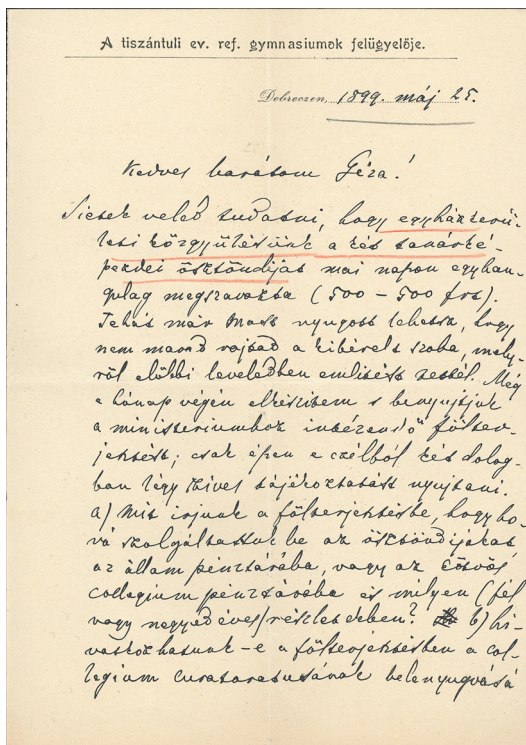 A tiszántuli ev. ref. gymnasiumok felügyelője.
Debreczen, 1899. máj 25.
Kedves barátom Géza!
Sietek veled tudatni, hogy egyházkerü-
leti közgyülésünk a két tanárké-
pezdei ösztöndijat mai napon egyhan-
gulag megszavazta (500 – 500 frt).
Tehát már most nyugodt lehetsz, hogy
nem marad rajtad a kibérelt szoba, mely-
ről előbbi leveledben emlitést tettél. Még
e hónap végén elkészitem s benyujtjuk
a ministeriumhoz intézendő fölter-
jesztést; csak épen e czélból két dolog-
ban légy szives tájékoztatást nyujtani.
a) Mit irjunk a fölterjesztésbe, hogy ho-
vá szolgáltattuk be az ösztöndijakat
az állam pénztárába, vagy az Eötvös
collegium pénztárába és milyen (fél
vagy negyedéves) részletekben? b) hi-
vatkozhatunk-e a fölterjesztésben a col-
legium curatoratusának belenyugvásá